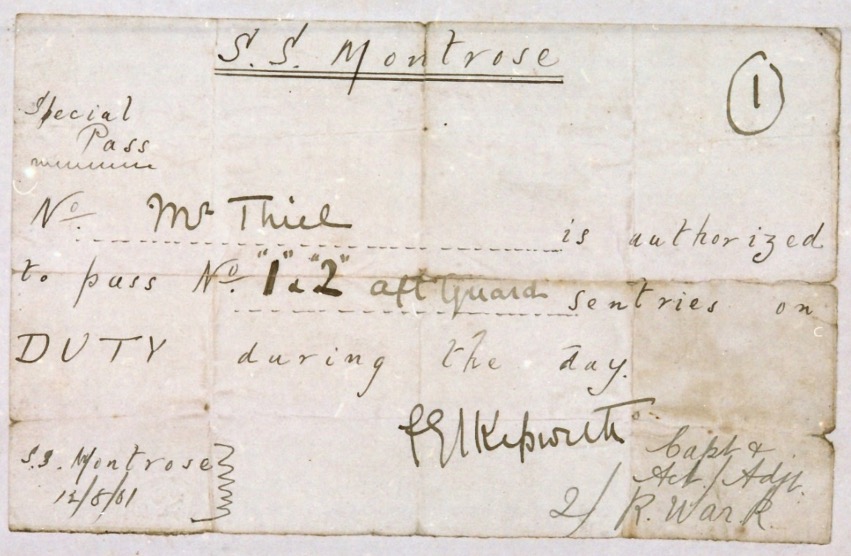 S. S. Montrose
1
Special
Pass
No. Mr Thiel is authorized
to pass No. "1" & "2" aft Guard sentries on
DUTY during the day.
Capt &
Act./Adjt.
2/ R. War. R.
S.S. Montrose
12/8/01